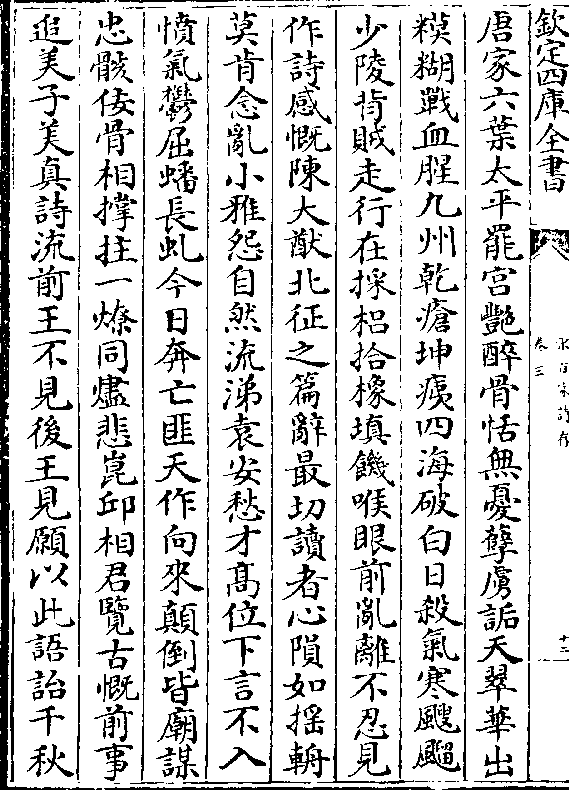 欽定四庫全書
卷三
十三
唐家六葉太平罷宮艷醉骨恬無憂孽虜詬天翠華出
糢糊戰血腥九州乾瘡坤痍四海破白日殺氣寒飀飀
少陵背賊走行在採梠拾橡填饑喉眼前亂離不忍見
作詩感慨陳大猷北征之篇辭最切讀者心隕如摇輈
莫肯念亂小雅怨自然流涕袁安愁才髙位下言不入
憤氣鬱屈蟠長虬今日奔亡匪天作向來顛倒皆廟謀
忠骸佞骨相撐拄一燎同燼悲崑邱相君覽古慨前事
追美子美真詩流前王不見後王見願以此語詒千秋